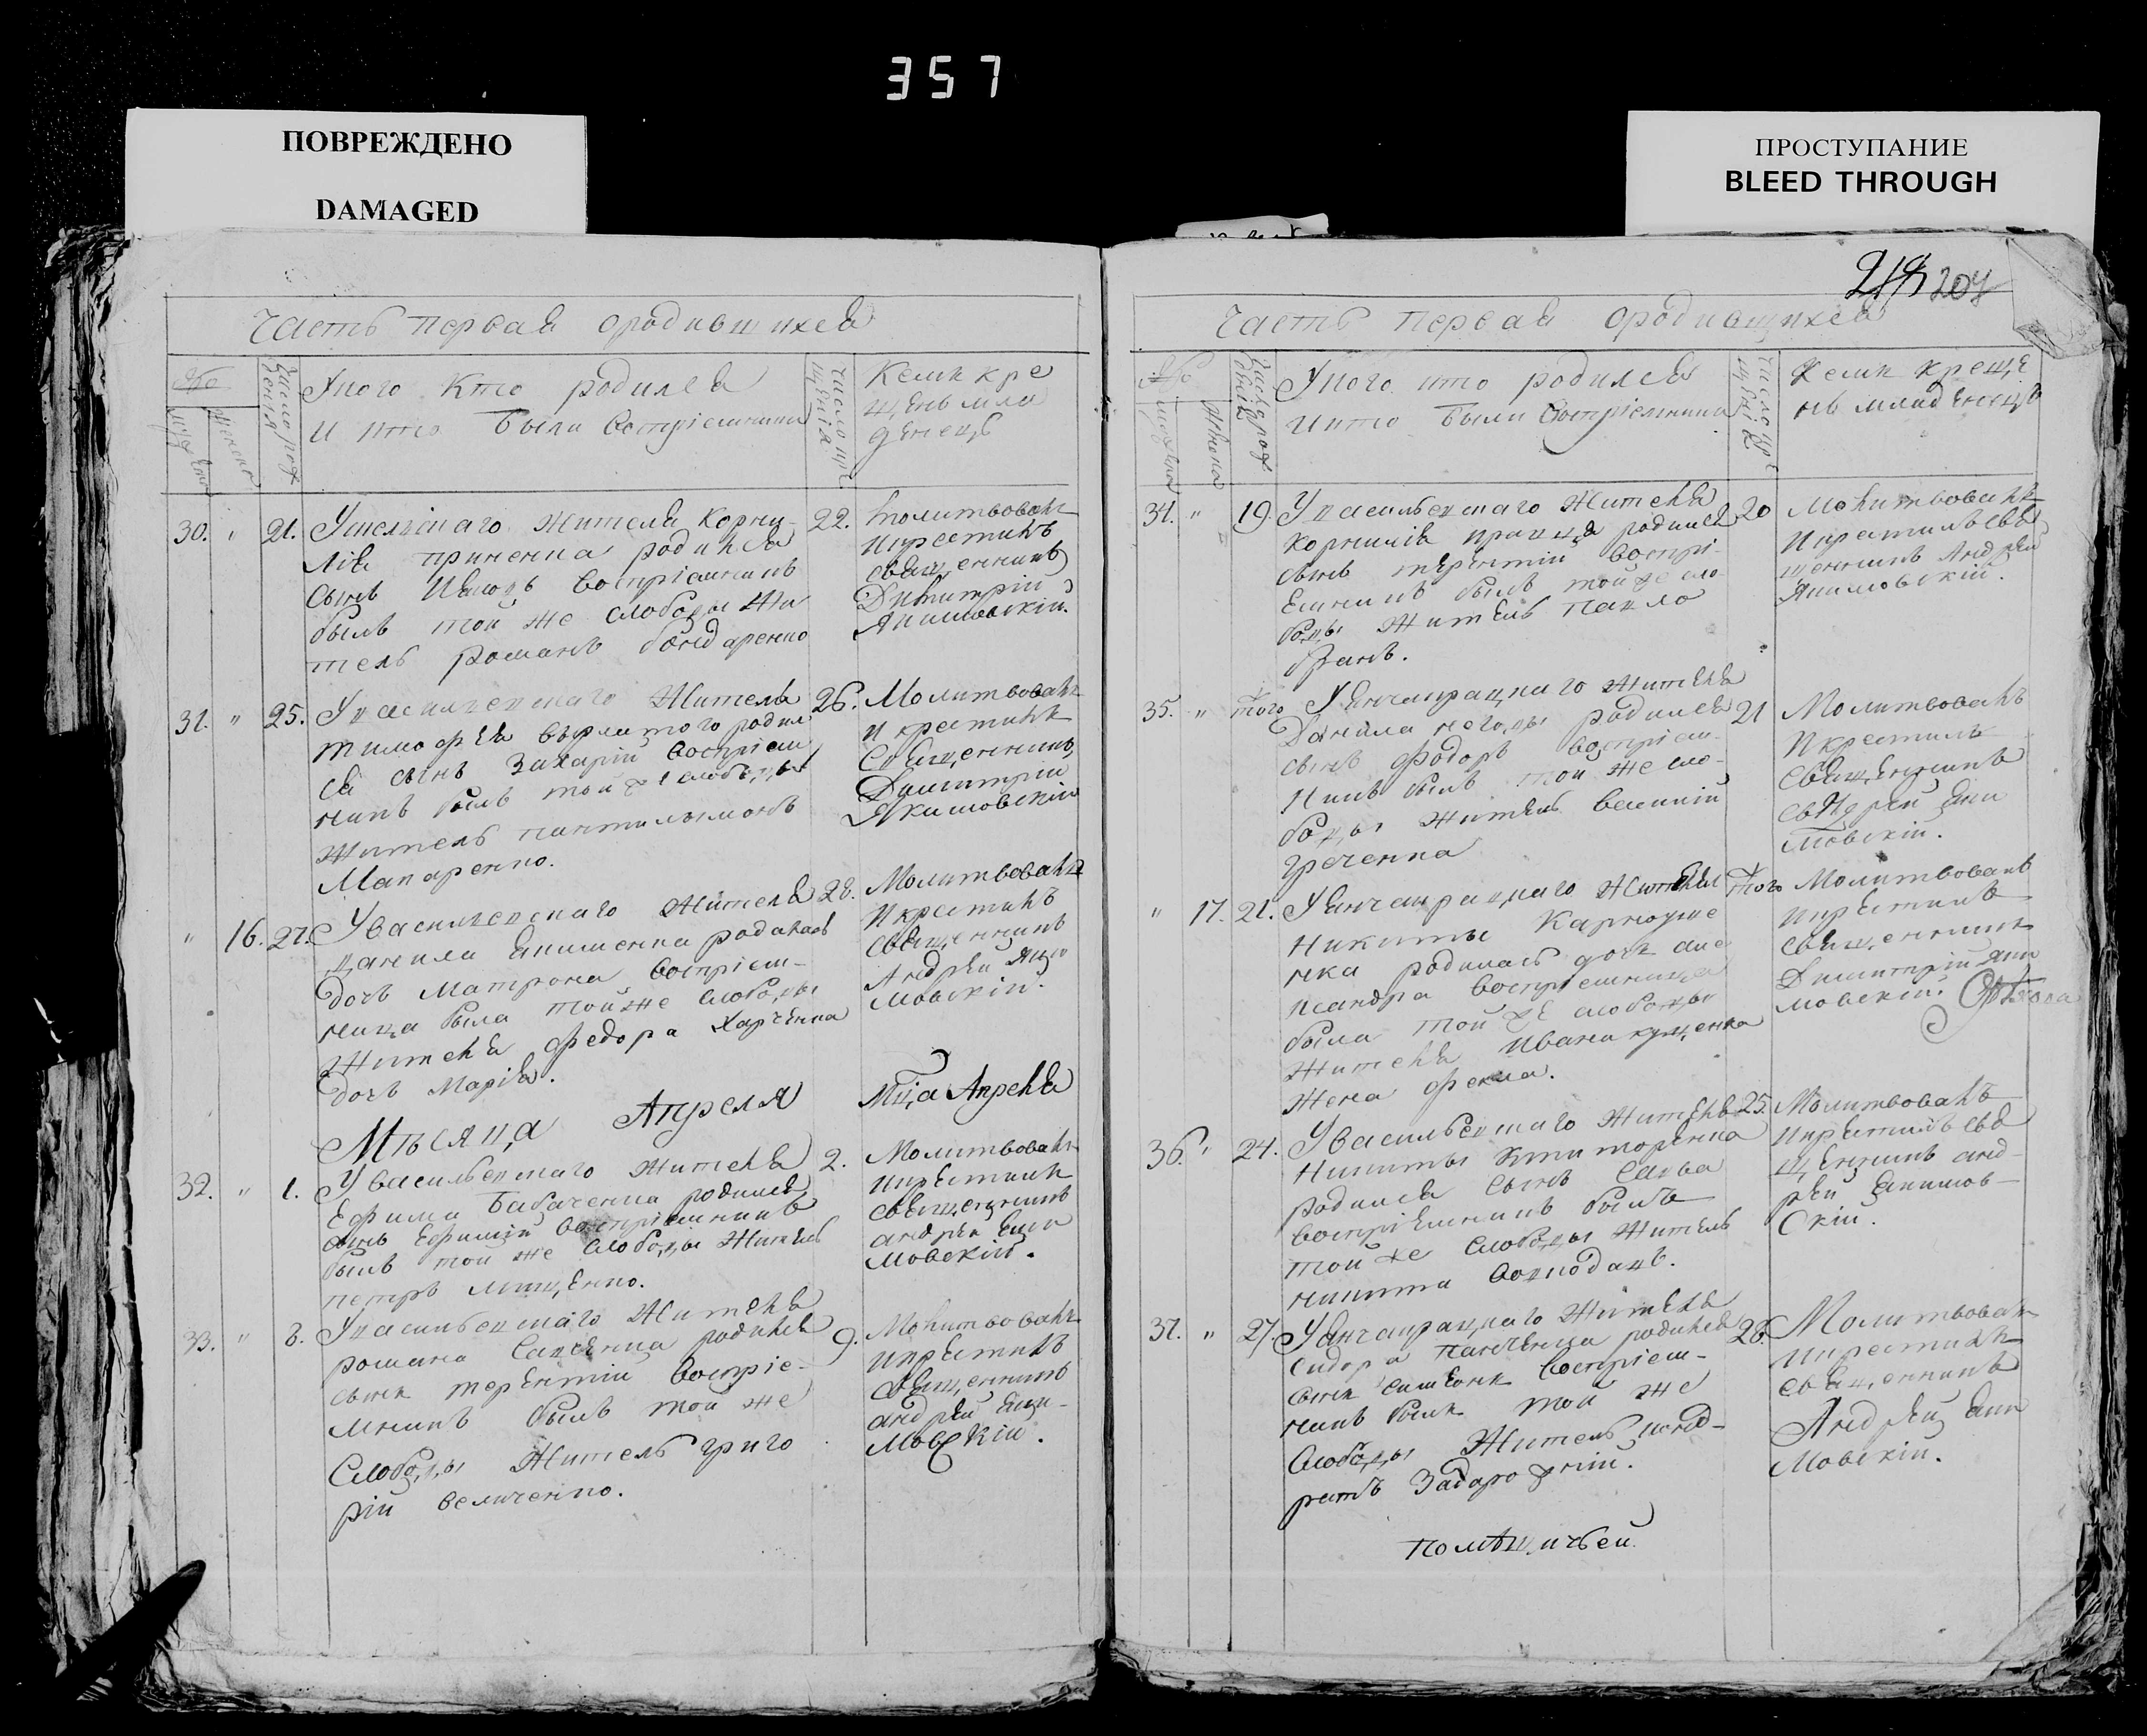 357
ПОВРЕЖДЕНО
DAMAGED
ПРОСТУПАНИЕ
BLEED THROUGH
204
Часть первая ородившихся
Число рож
дения
Укого кто родился
и кто были Восприемники
Число кре
щения
Кемъ кре
щенъ мла
денецъ
30. " 21.
жителя Корни
лія родился
сынъ восприемникъ
былъ той же слободы жи
тель романъ бондаренко
22.
молитвовалъ
икрестилъ
священникъ
Димитрій
Якимовскій.
31. " 25.
Увасилевскаго Жителя
тимофея родил
ся сынъ Захарій восприем
никъ былъ той же слободы
житель пантилимонъ
Макаренко.
26.
Молитвовалъ
и крестилъ
Священникъ
Димитрій
Якимовскій
" 16. 27.
Увасилевскаго Жителя
данила Якименка родилась
дочь Матрона восприем-
ница была тойже слободы
Жителя федора Харченка
дочь Марія.
28.
Молитвовалъ
икрестилъ
священникъ
Андрей Яки
мовскій.
Мѣсяца Апреля
Мца Апреля
32. " 1.
Увасильевскаго жителя
Ефима Бабаченка родился
сынъ Ефимій восприемникъ
былъ той же слободы житель
петръ лищенко.
2.
Молитвовалъ
икрестилъ
священникъ
андрей Яки
мовскій.
33. " 8.
Увасильевскаго Жителя
романа Савченка родился
сынъ терентій воспріе-
мникъ былъ той же
Слободы житель григо
рій величенко.
9.
Молитвовалъ
икрестилъ
священникъ
андрей Яки-
мовскій.
Часть первая ородившихся
Число рож
дения
Укого кто родился
икто были восприемники
Число кре
щенія
Кемъ креще
нъ младенецъ
34. " 19.
Увасильевскаго жителя
корнилія кравца родился
сынъ терентій воспрі-
емникъ былъ той же сло
боды житель павло
бранъ.
20
Молитвовалъ
икрестилъ свя
щенникъ Андрей
Якимовскій.
35. " того
жителя
Данила негоды родился
сынъ федоръ восприем-
никъ былъ той же сло-
боды житель василій
греченка
21
Молитвовалъ
икрестилъ
священникъ
Андрей Яки
мовскій.
" 17. 21.
жителя
Никиты Карнауше
нка родилась дочь але
ксандра восприемница
была той же слободы
жителя Ивана куценка
жена фекла.
того
Молитвовалъ
икрестилъ
священникъ
Димитрій Яки
мовскій.
36. " 24.
Увасильевскаго жителя
Никиты
родился сынъ Савва
восприемникъ былъ
той же слободы житель
никита воеводинъ.
25.
Молитвовалъ
икрестилъ свя
щенникъ анд-
рей Якимов-
скій.
37. " 27
жителя
Сидора панченка родился
сынъ симеонъ восприем-
никъ былъ той же
Слободы Житель конд-
ратъ Задорожній.
28.
Молитвовалъ
икрестилъ
священникъ
Андрей Яки
мовскій.
помѣщичьей